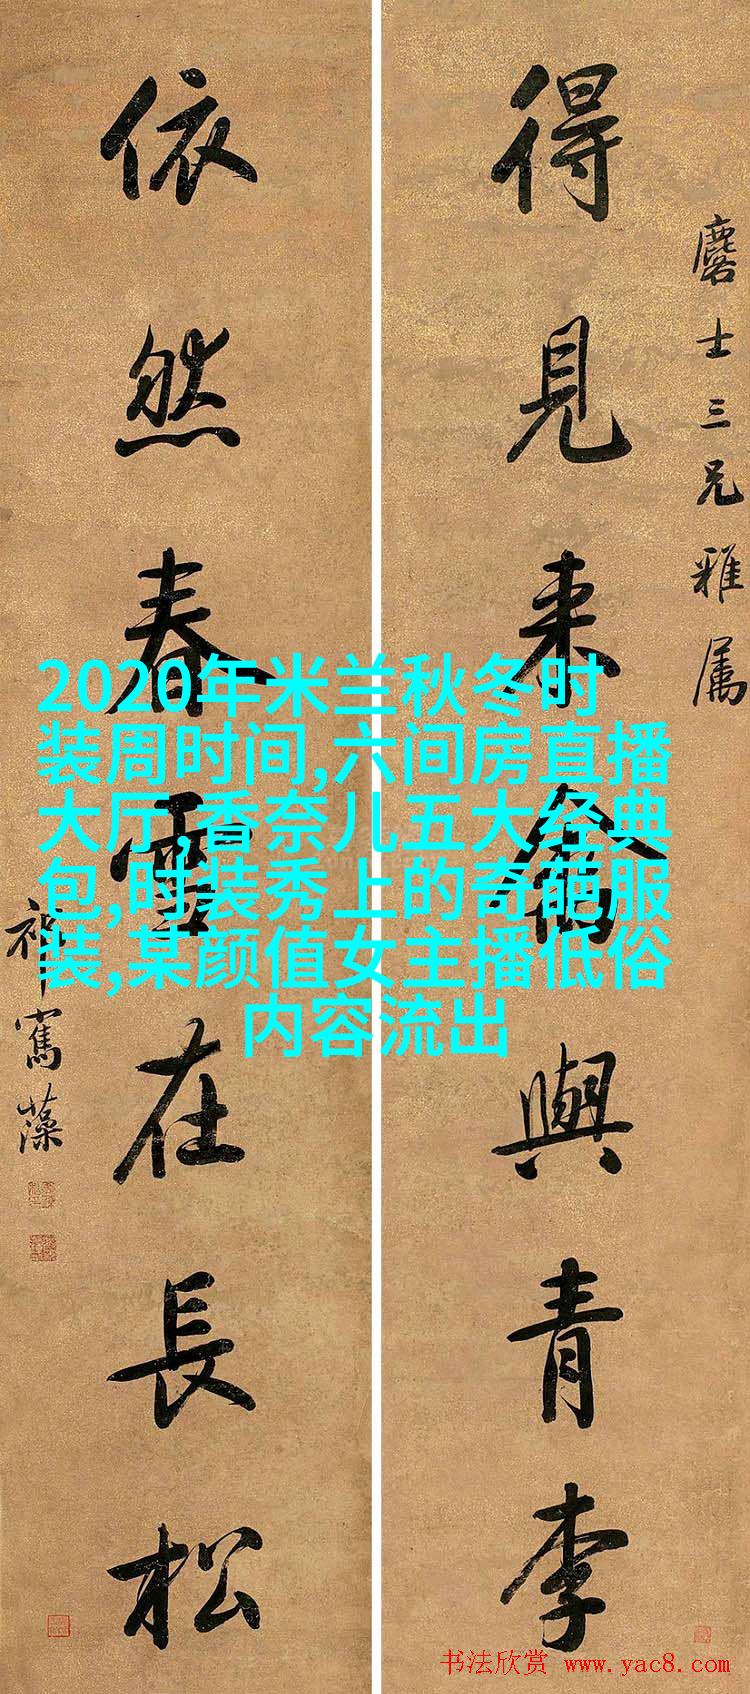 得見來禽與青李
麐士三兄雅属
依然春雪在長松
祁寯藻
2020年米兰秋冬时
装周时间,六间房直播
大厅,香奈儿五大经典
包,时装秀上的奇葩服
装,某颜值女主播低俗
内容流出
书法欣赏 www.yac8.com